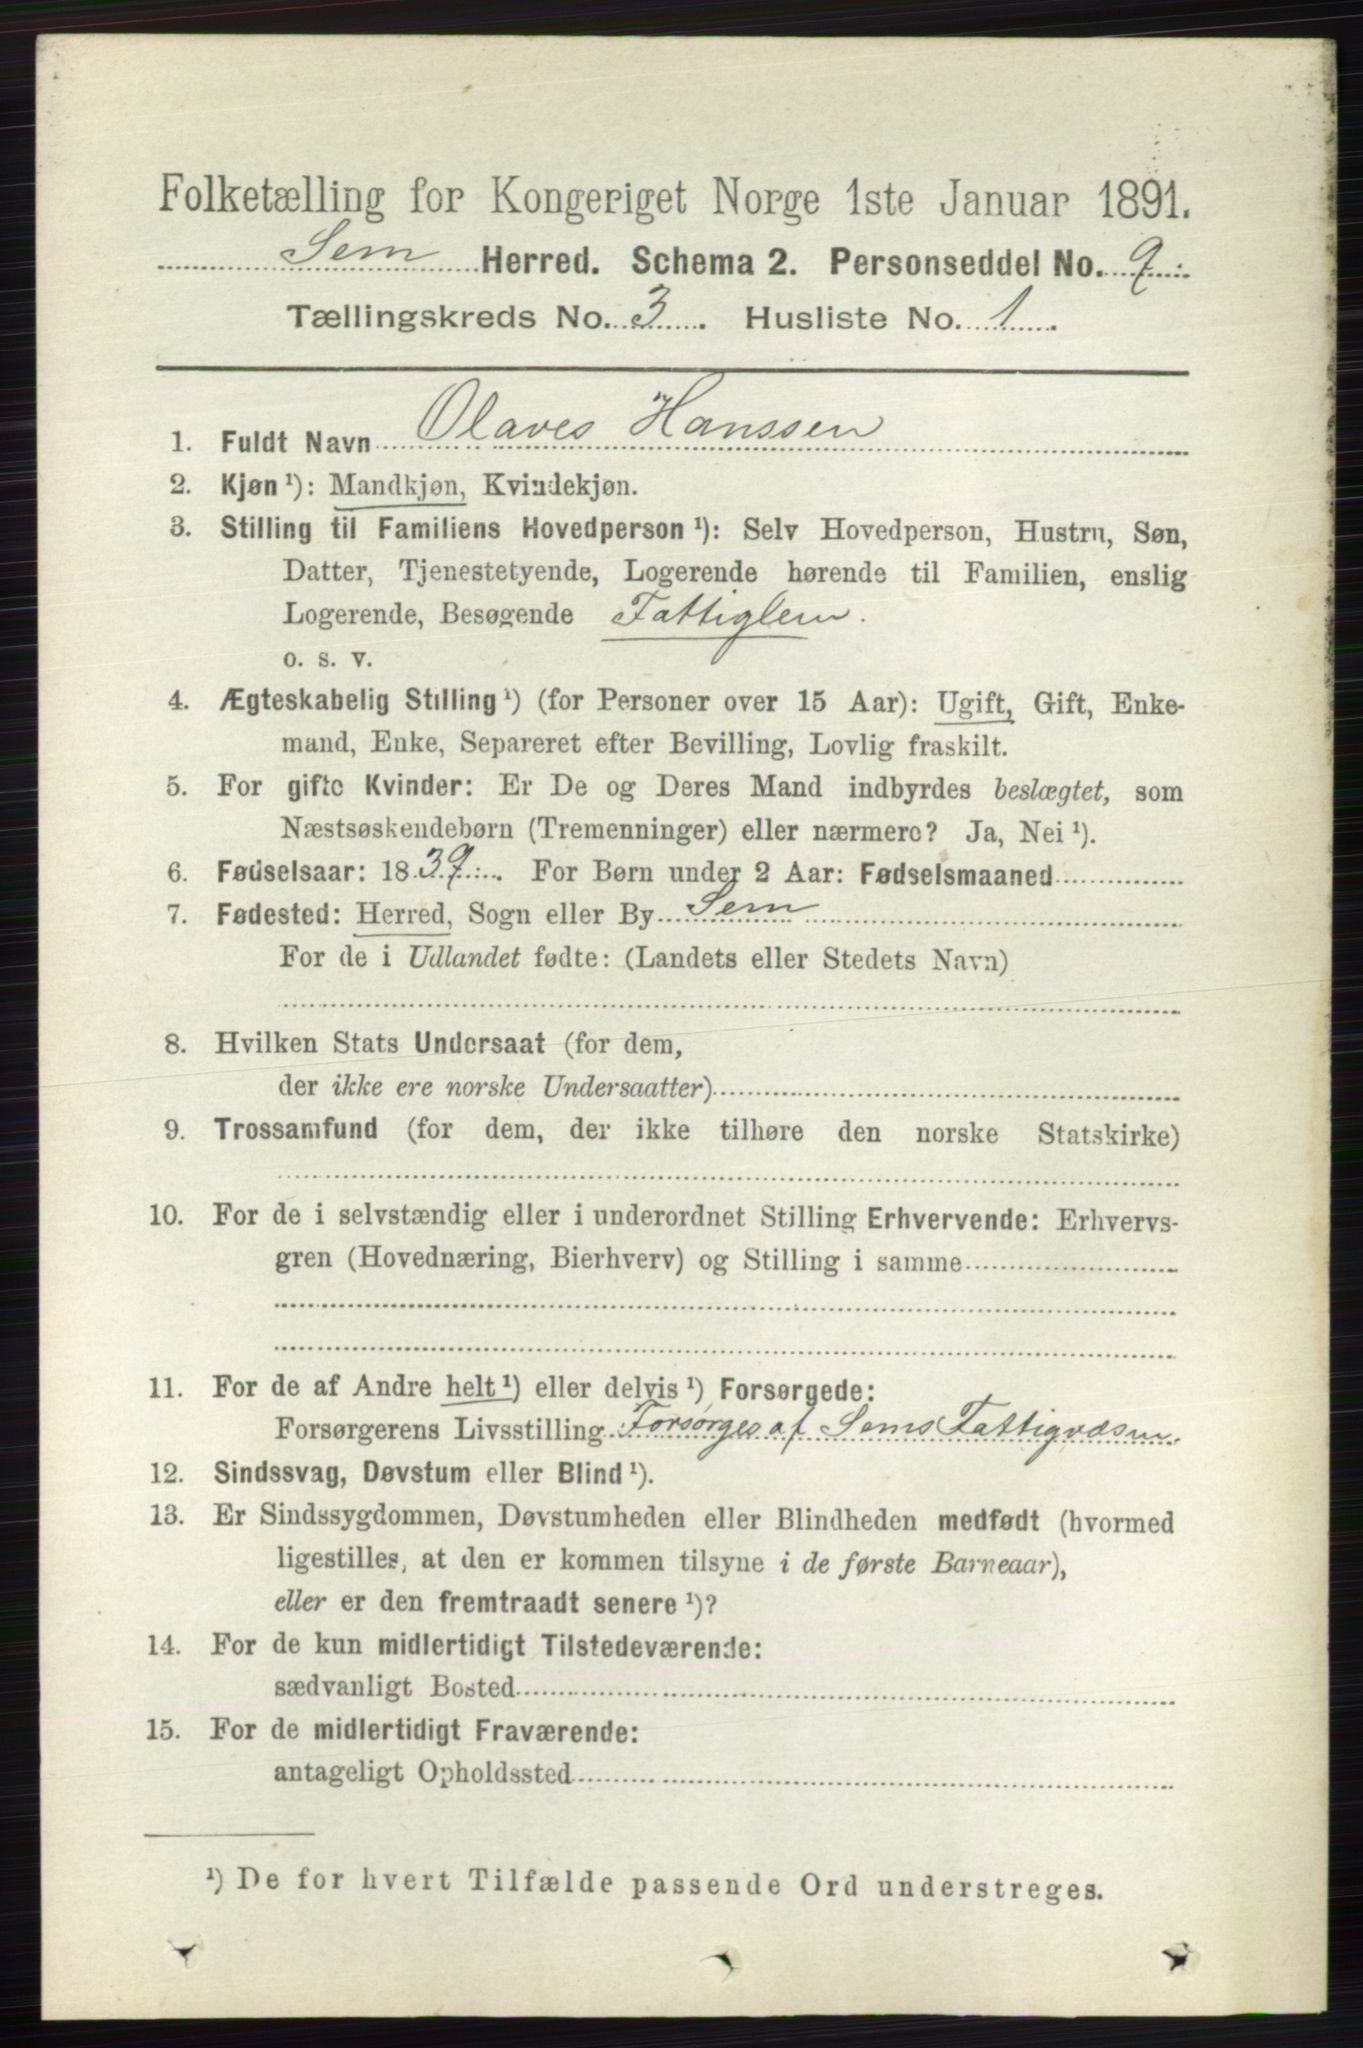 Folketælling for Kongeriget Norge 1ste Januar 1891.
Sem Herred. Schema 2. Personseddel No. 9
Tællingskreds No. 3. Husliste No. 1.
1. Fuldt Navn Olaves Hanssen
2. Kjøn ¹): Mandkjøn, Kvindekjøn.
3. Stilling til Familiens Hovedperson ¹): Selv Hovedperson, Hustru, Søn,
Datter, Tjenestetyende, Logerende hørende til Familien, enslig
Logerende, Besøgende Fattiglem.
o. s. v.
4. Ægteskabelig Stilling ¹) (for Personer over 15 Aar): Ugift, Gift, Enke-
mand, Enke, Separeret efter Bevilling, Lovlig fraskilt.
5. For gifte Kvinder: Er De og Deres Mand indbyrdes beslægtet, som
Næstsøskendebørn (Tremenninger) eller nærmere? Ja, Nei ¹).
6. Fødselsaar: 1839. For Børn under 2 Aar: Fødselsmaaned
7. Fødested: Herred, Sogn eller By Sem
For de i Udlandet fødte: (Landets eller Stedets Navn)
8. Hvilken Stats Undersaat (for dem,
der ikke ere norske Undersaatter)
9. Trossamfund (for dem, der ikke tilhøre den norske Statskirke)
10. For de i selvstændig eller i underordnet Stilling Erhvervende: Erhvervs-
gren (Hovednæring, Bierhverv) og Stilling i samme
11. For de af Andre helt ¹) eller delvis ¹) Forsørgede:
Forsørgerens Livsstilling Forsørges af Sems Fattigvæsn.
12. Sindssvag, Døvstum eller Blind ¹).
13. Er Sindssygdommen, Døvstumheden eller Blindheden medfødt (hvormed
ligestilles, at den er kommen tilsyne i de første Barneaar),
eller er den fremtraadt senere ¹)?
14. For de kun midlertidigt Tilstedeværende:
sædvanligt Bosted
15. For de midlertidigt Fraværende:
antageligt Opholdssted
¹) De for hvert Tilfælde passende Ord understreges.